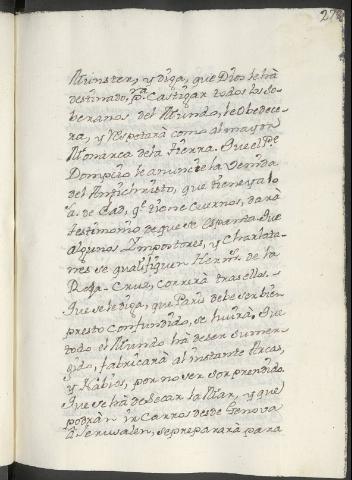 27
Munster, y diga, que Dios le hà
destinado, pª. Castigar todos los So-
beranos, del Mundo, le Obedece-
rà, y Respetarà como al mayor
Monarca de la tierra. Que el Pe
Dompcio le anuncie la Venida
del Antichristo, que tiene ya 10
as. de edad, qe. tiene Cuernos, darà
testimonio de que se espanta. Que
algunos Impostores, y Charlata-
nes se qualifiquen Hermos. de la
Rosa-Cruz, correrà tras ellos.
Que se le diga, que Paris debe ser bien
presto confundido, se huirà. Que
todo el Mundo hà de ser sumer-
gido, fabricarà al instante Arcas,
y Nabios, por no ser sorprendido.
Que se hà de Secar la Mar, y que
podràn ir Carros desde Genova
à Jerusalen, se prepararà para